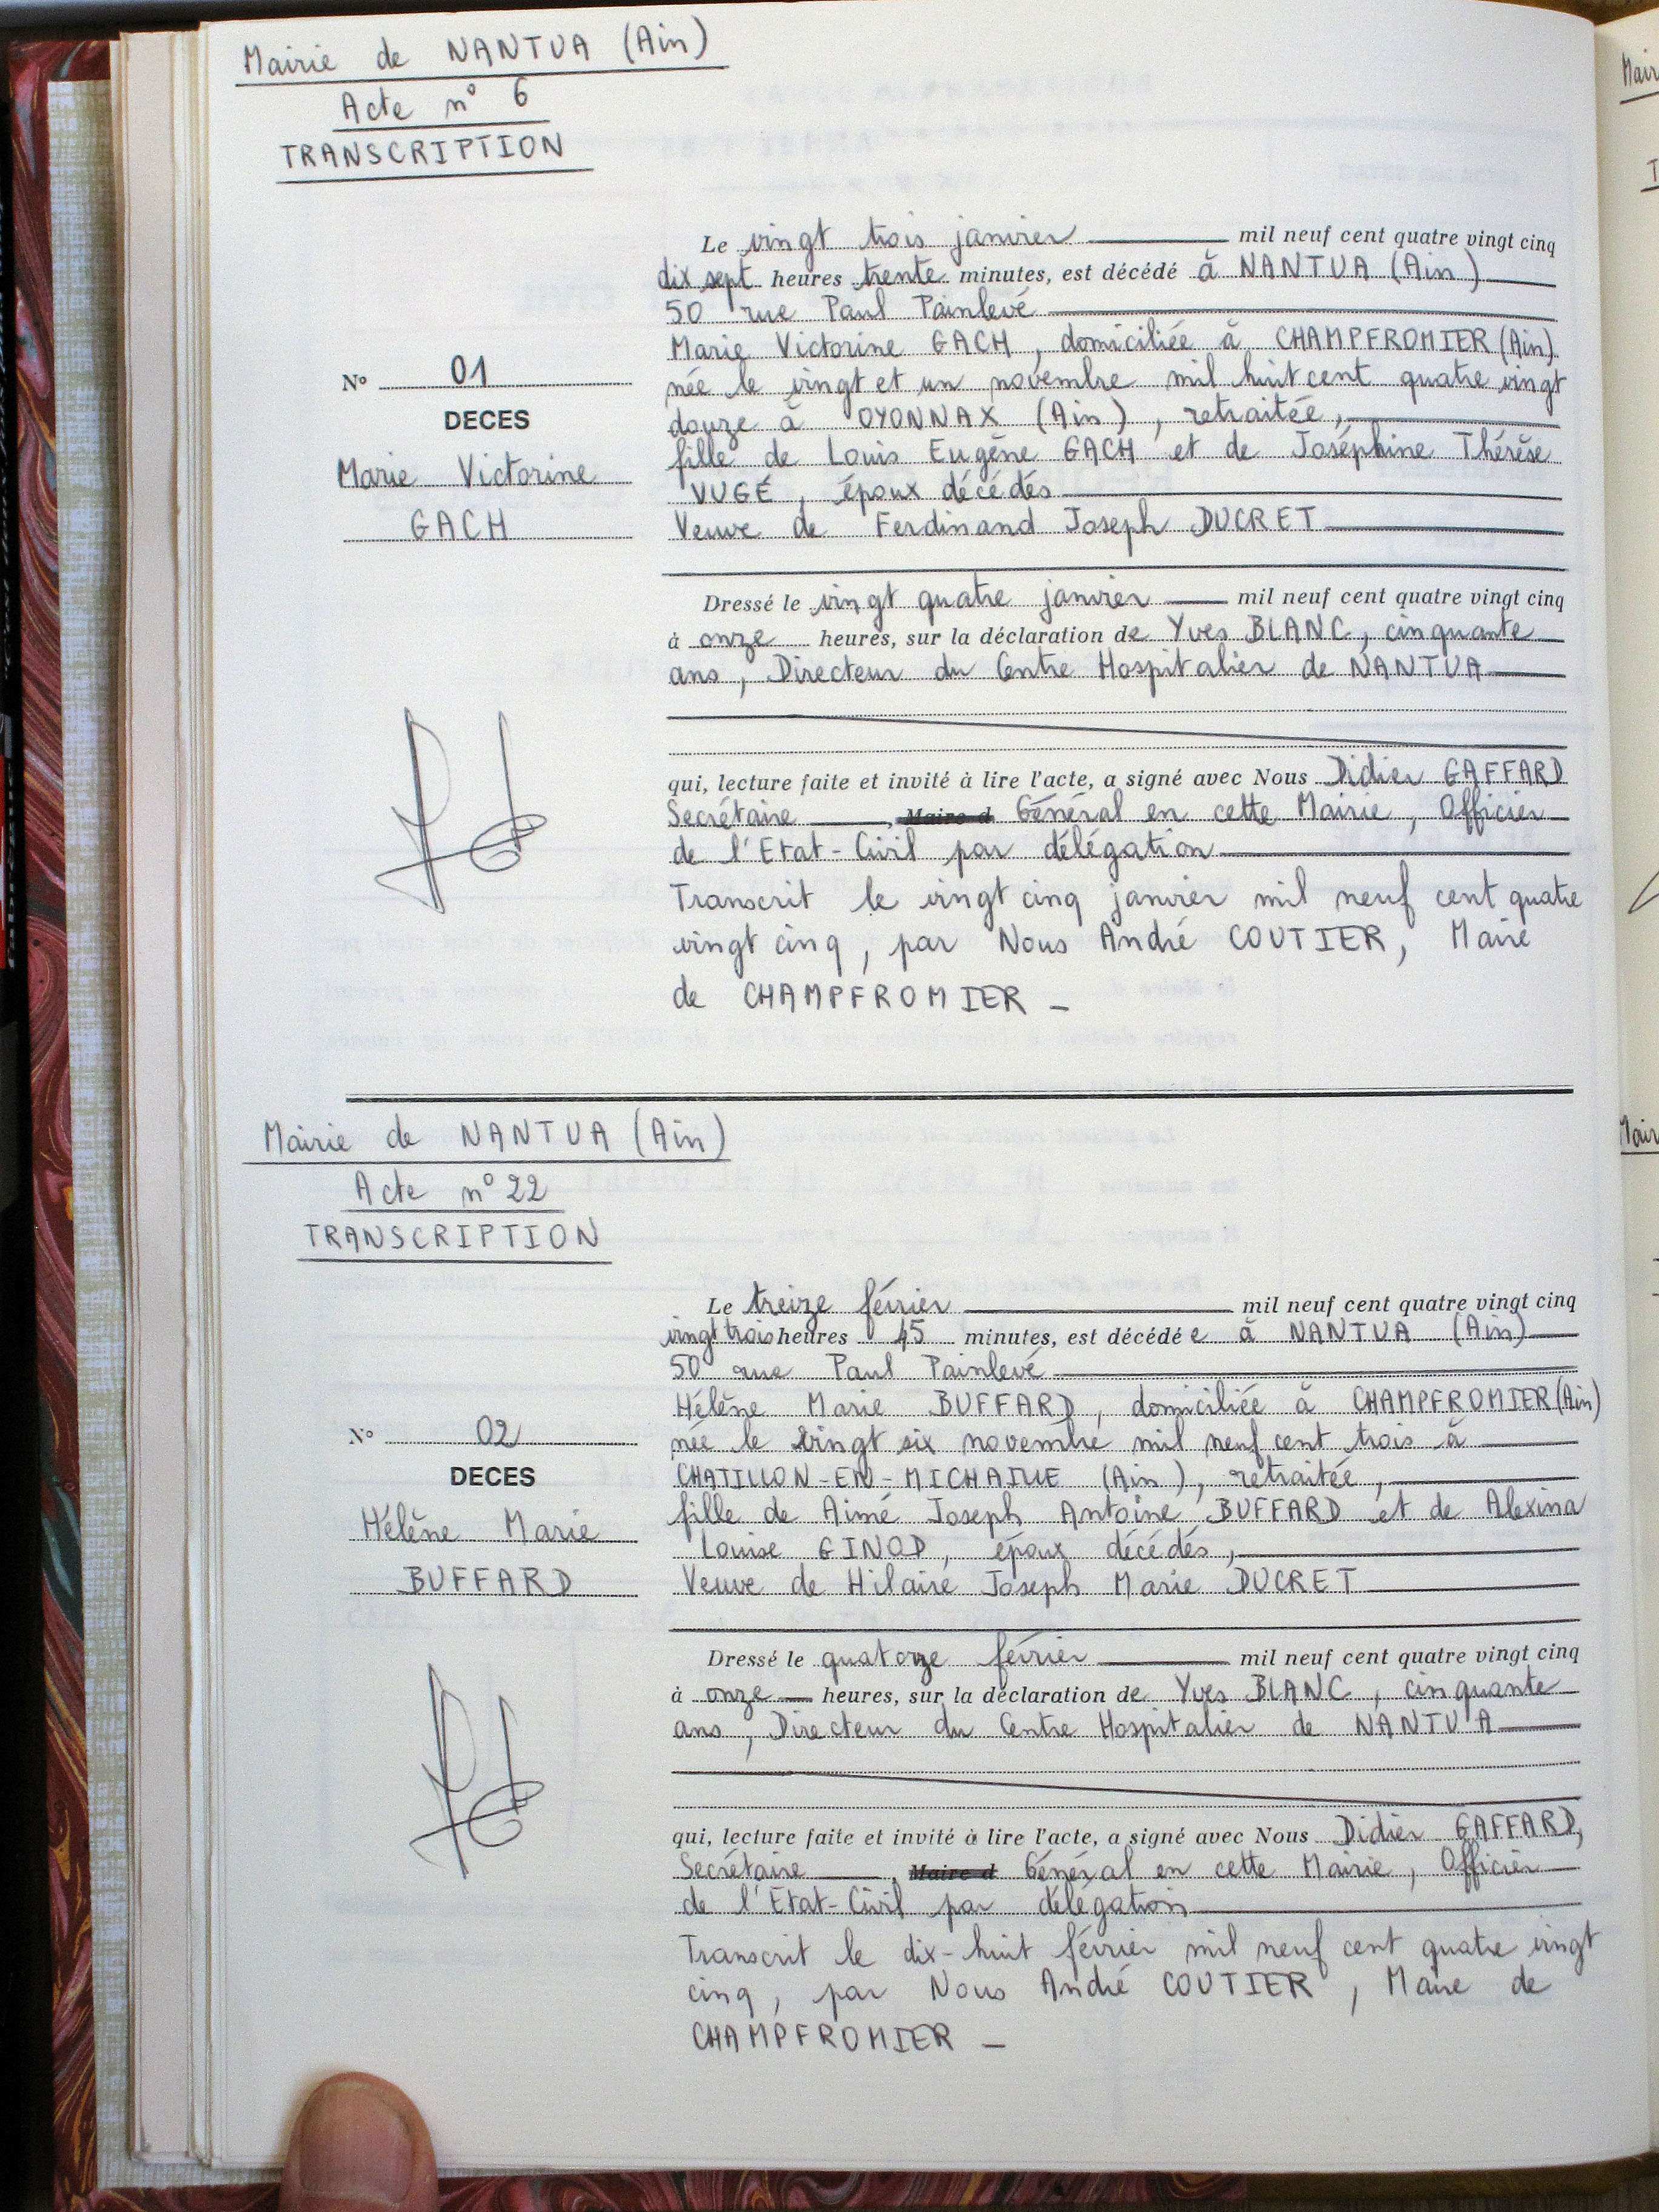 Mairie de NANTUA (Ain)
Acte n° 6
TRANSCRIPTION
Le vingt trois janvier mil neuf cent quatre vingt cinq
dix sept heures trente minutes, est décédé à NANTUA (Ain)
50 rue Paul Painlevé
Marie Victorine GACH, domiciliée à CHAMPFROMIER (Ain)
née le vingt et un novembre mil huit cent quatre vingt
douze à OYONNAX (Ain), retraitée,
fille de Louis Eugène GACH et de Joséphine Thérèse
VUGÉ, époux décédés
Veuve de Ferdinand Joseph DUCRET
N° 01
DECES
Marie Victorine
GACH
Dressé le vingt quatre janvier mil neuf cent quatre vingt cinq
à onze heures, sur la déclaration de Yves BLANC, cinquante
ans, Directeur du Centre Hospitalier de NANTUA
qui, lecture faite et invité à lire l'acte, a signé avec Nous Didier GAFFARD
Secrétaire, Maire d Général en cette Mairie, Officier
de l'Etat-Civil par délégation
Transcrit le vingt cinq janvier mil neuf cent quatre
vingt cinq, par Nous André COUTIER, Maire
de CHAMPFROMIER -
Mairie de NANTUA (Ain)
Acte n° 22
TRANSCRIPTION
Le treize février mil neuf cent quatre vingt cinq
vingt trois heures 45 minutes, est décédée à NANTUA (Ain)
50 rue Paul Painlevé
Hélène Marie BUFFARD, domiciliée à CHAMPFROMIER (Ain)
née le vingt six novembre mil neuf cent trois à
CHATILLON-EN-MICHAILLE (Ain), retraitée,
fille de Aimé Joseph Antoine BUFFARD et de Alexina
Louise GINOD, époux décédés,
Veuve de Hilaire Joseph Marie DUCRET
N° 02
DECES
Hélène Marie
BUFFARD
Dressé le quatorze février mil neuf cent quatre vingt cinq
à onze heures, sur la déclaration de Yves BLANC, cinquante
ans, Directeur du Centre Hospitalier de NANTUA
qui, lecture faite et invité à lire l'acte, a signé avec Nous Didier GAFFARD,
Secrétaire, Maire d Général en cette Mairie, Officier
de l'Etat-Civil par délégation
Transcrit le dix-huit février mil neuf cent quatre vingt
cinq, par Nous André COUTIER, Maire de
CHAMPFROMIER -